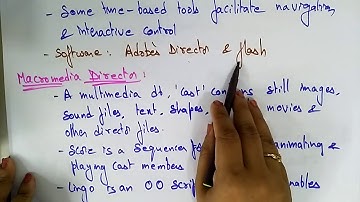 - Some time-based tools facilitate navigation
& interactive control
- Software: Adobe's Director & flash
Macromedia Director:
- A multimedia dt, 'cast' con ns still images,
sound files, text, shapes, movies &
other director files.
- Score is a Sequencer f animating &
playing cast members
- Lingo is an OO Scri nables